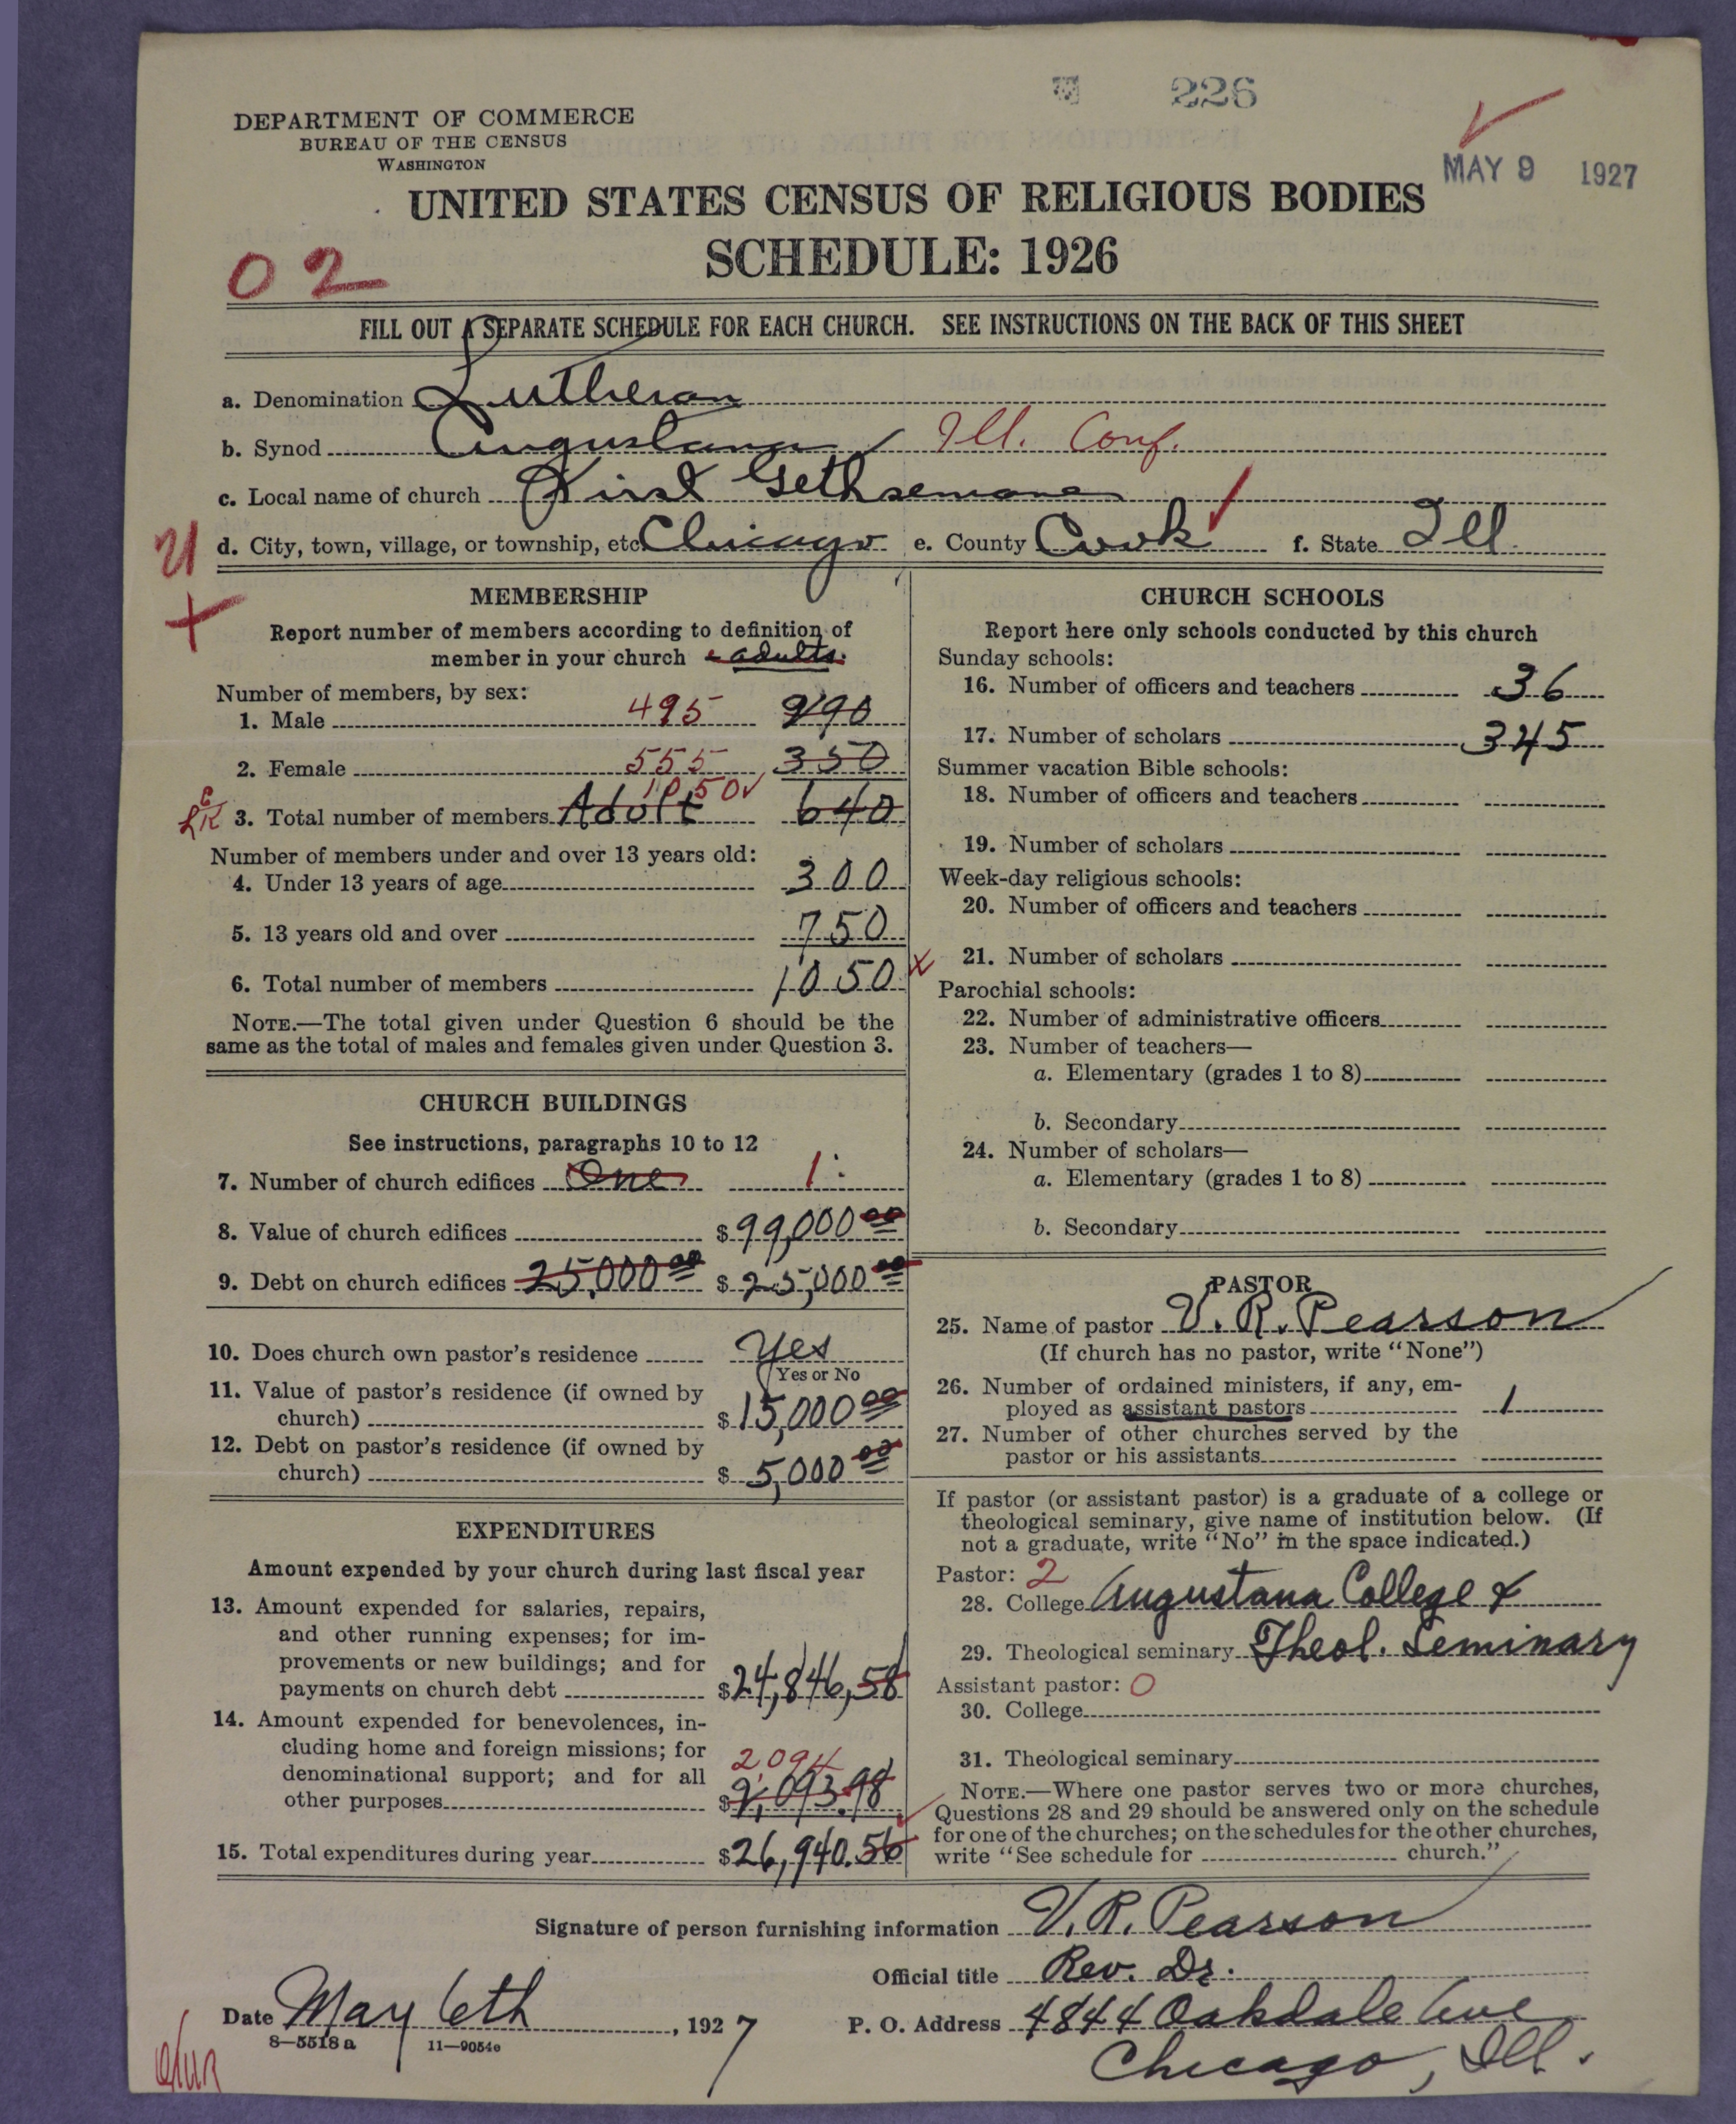 226
DEPARTMENT OF COMMERCE
BUREAU OF THE CENSUS
WASHINGTON
MAY 9 1927
UNITED STATES CENSUS OF RELIGIOUS BODIES
SCHEDULE: 1926
02
FILL OUT A SEPARATE SCHEDULE FOR EACH CHURCH. SEE INSTRUCTIONS ON THE BACK OF THIS SHEET
a. Denomination Lutheran
b. Synod Augustana Ill. Conf.
c. Local name of church First Gethsemane
d. City, town, village, or township, etc. Chicago e. County Cook f. State Ill.
MEMBERSHIP
Report number of members according to definition of
member in your church adults.
Number of members, by sex:
1. Male 495 290
2. Female 555 350
1050
3. Total number of members Adult 640
Number of members under and over 13 years old:
4. Under 13 years of age 300
5. 13 years old and over 750
6. Total number of members 1050
NOTE.—The total given under Question 6 should be the
same as the total of males and females given under Question 3.
CHURCH BUILDINGS
See instructions, paragraphs 10 to 12
7. Number of church edifices One 1
8. Value of church edifices $99,000 00
9. Debt on church edifices 25,000 00 $25,000 00
10. Does church own pastor's residence Yes
Yes or No
11. Value of pastor's residence (if owned by
church) $15,000 00
12. Debt on pastor's residence (if owned by
church) $5,000 00
EXPENDITURES
Amount expended by your church during last fiscal year
13. Amount expended for salaries, repairs,
and other running expenses; for im-
provements or new buildings; and for
payments on church debt $24,846,58
14. Amount expended for benevolences, in-
cluding home and foreign missions; for
denominational support; and for all
2,094
other purposes $2,093.98
15. Total expenditures during year $26,940.56
CHURCH SCHOOLS
Report here only schools conducted by this church
Sunday schools:
16. Number of officers and teachers 36
17. Number of scholars 345
Summer vacation Bible schools:
18. Number of officers and teachers
19. Number of scholars
Week-day religious schools:
20. Number of officers and teachers
21. Number of scholars
Parochial schools:
22. Number of administrative officers
23. Number of teachers—
a. Elementary (grades 1 to 8)
b. Secondary
24. Number of scholars—
a. Elementary (grades 1 to 8)
b. Secondary
PASTOR
25. Name of pastor V. R. Pearson
(If church has no pastor, write "None")
26. Number of ordained ministers, if any, em-
ployed as assistant pastors 1
27. Number of other churches served by the
pastor or his assistants
If pastor (or assistant pastor) is a graduate of a college or
theological seminary, give name of institution below. (If
not a graduate, write "No" in the space indicated.)
Pastor: 2
28. College Augustana College &
29. Theological seminary Theol. Seminary
Assistant pastor: 0
30. College
31. Theological seminary
NOTE.—Where one pastor serves two or more churches,
Questions 28 and 29 should be answered only on the schedule
for one of the churches; on the schedules for the other churches,
write "See schedule for church."
Signature of person furnishing information V. R. Pearson
Official title Rev. Dr.
Date May 6th, 1927 P. O. Address 4844 Oakdale Ave
Chicago, Ill.
8—5518 a 11—9054c